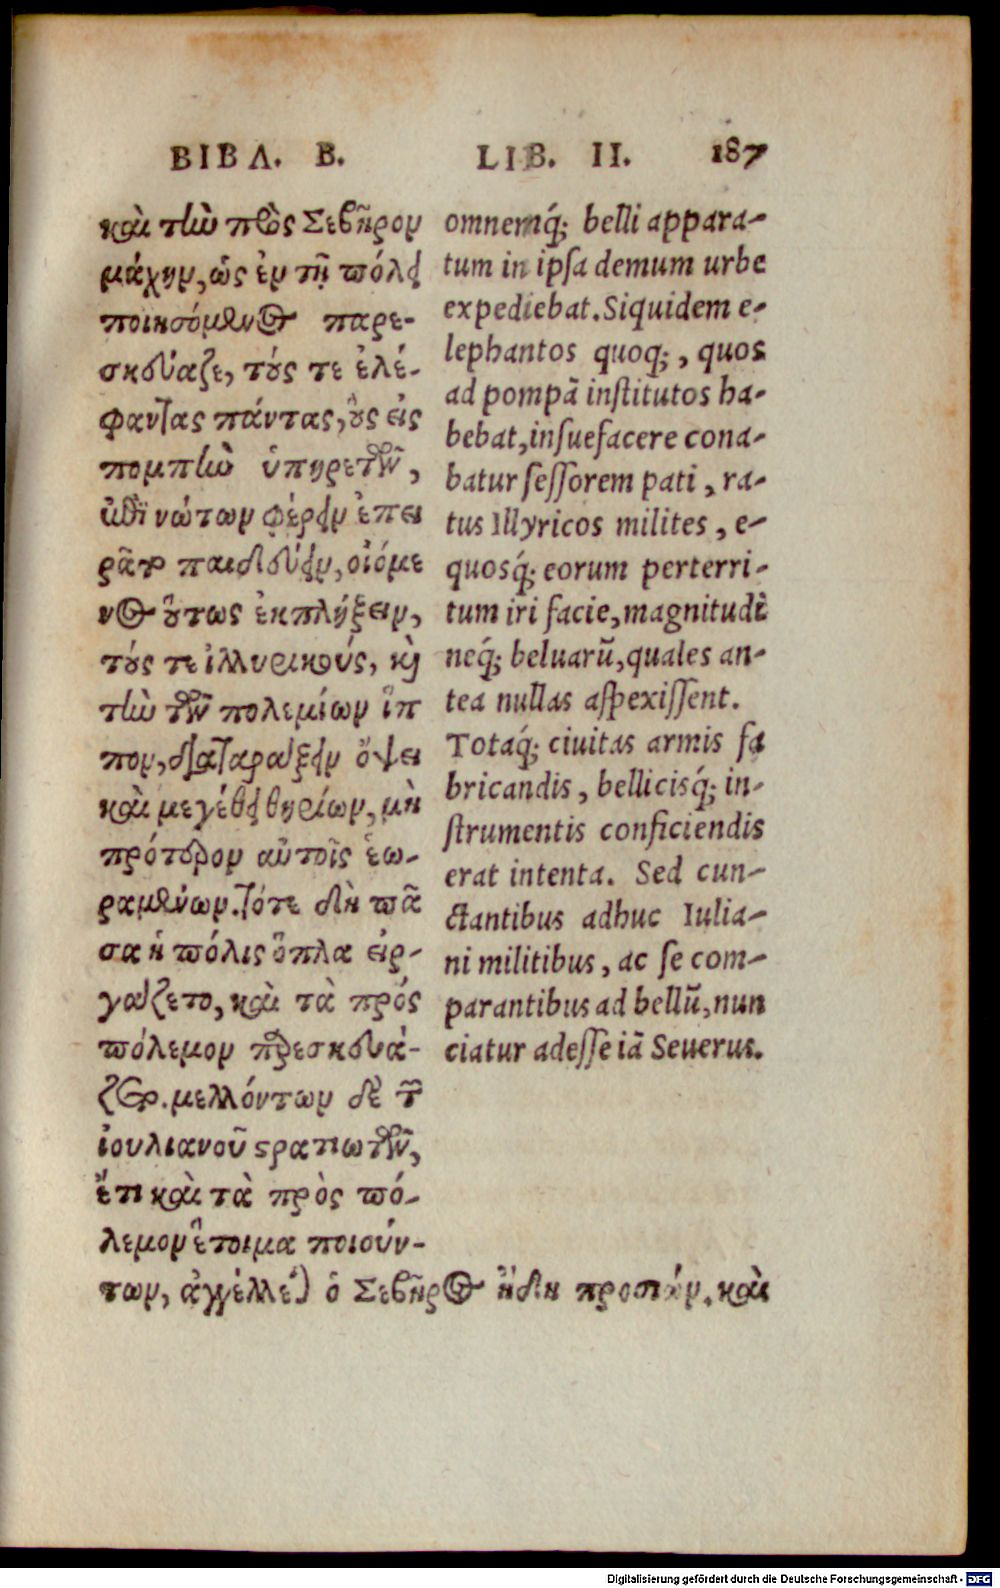 ΒΙΒΛ. Β.
καὶ τὴν πρὸς Σεβῆρον
μάχην, ὡς ἐν τῇ πόλει
ποιησόμενος παρε-
σκεύαζε, τούς τε ἐλέ-
φαντας πάντας, οὓς εἰς
πομπὴν ὑπηρετῶν,
ἐπὶ νώτων φέρειν ἐπει
ρᾶτο παιδεύειν, οἰόμε
νος οὕτως ἐκπλήξειν,
τούς τε ἰλλυρικούς, καὶ
τὴν τῶν πολεμίων ἵπ
πον, διαταράξειν ὄψει
καὶ μεγέθει θηρίων, μὴ
πρότερον αὐτοῖς ἑω-
ραμένων. τότε δὴ πᾶ
σα ἡ πόλις ὅπλα εἰρ-
γάζετο, καὶ τὰ πρός
πόλεμον παρεσκευά-
ζετο. μελλόντων δὲ τῶν
ἰουλιανοῦ στρατιωτῶν,
ἔτι καὶ τὰ πρὸς πό-
λεμον ἕτοιμα ποιούν-
των, ἀγγέλλεται ὁ Σεβῆρος ἤδη προσιών. καὶ
LIB. II. 187
omnemq́; belli appara-
tum in ipsa demum urbe
expediebat. Siquidem e-
lephantos quoq;, quos
ad pompã institutos ha-
bebat, insuefacere cona-
batur sessorem pati, ra-
tus Illyricos milites, e-
quosq́; eorum perterri-
tum iri facie, magnitudĩ
neq́; beluarũ, quales an-
tea nullas aspexissent.
Totaq́; ciuitas armis fa
bricandis, bellicisq́; in-
strumentis conficiendis
erat intenta. Sed cun-
ctantibus adhuc Iulia-
ni militibus, ac se com-
parantibus ad bellũ, nun
ciatur adesse iã Seuerus.
Digitalisierung gefördert durch die Deutsche Forschungsgemeinschaft - DFG